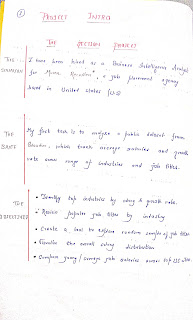 ①
PROJECT INTRO
THE SECTION PROJECT
THE SITUATION
I have been hired as a Business Intelligence Analyst
for Maven Recruiters, a job placement agency
based in United States (US)
THE BRIEF
My first task is to analyze a public dataset from
which tracks average salaries and growth
rate across range of industries and job titles.
THE OBJECTIVES
• Identify top industries by salary & growth rate.
• Review popular job titles by industry
• Create a tool to explore random samples of job titles
• Visualize the overall salary distribution
• Compare average salaries across top US